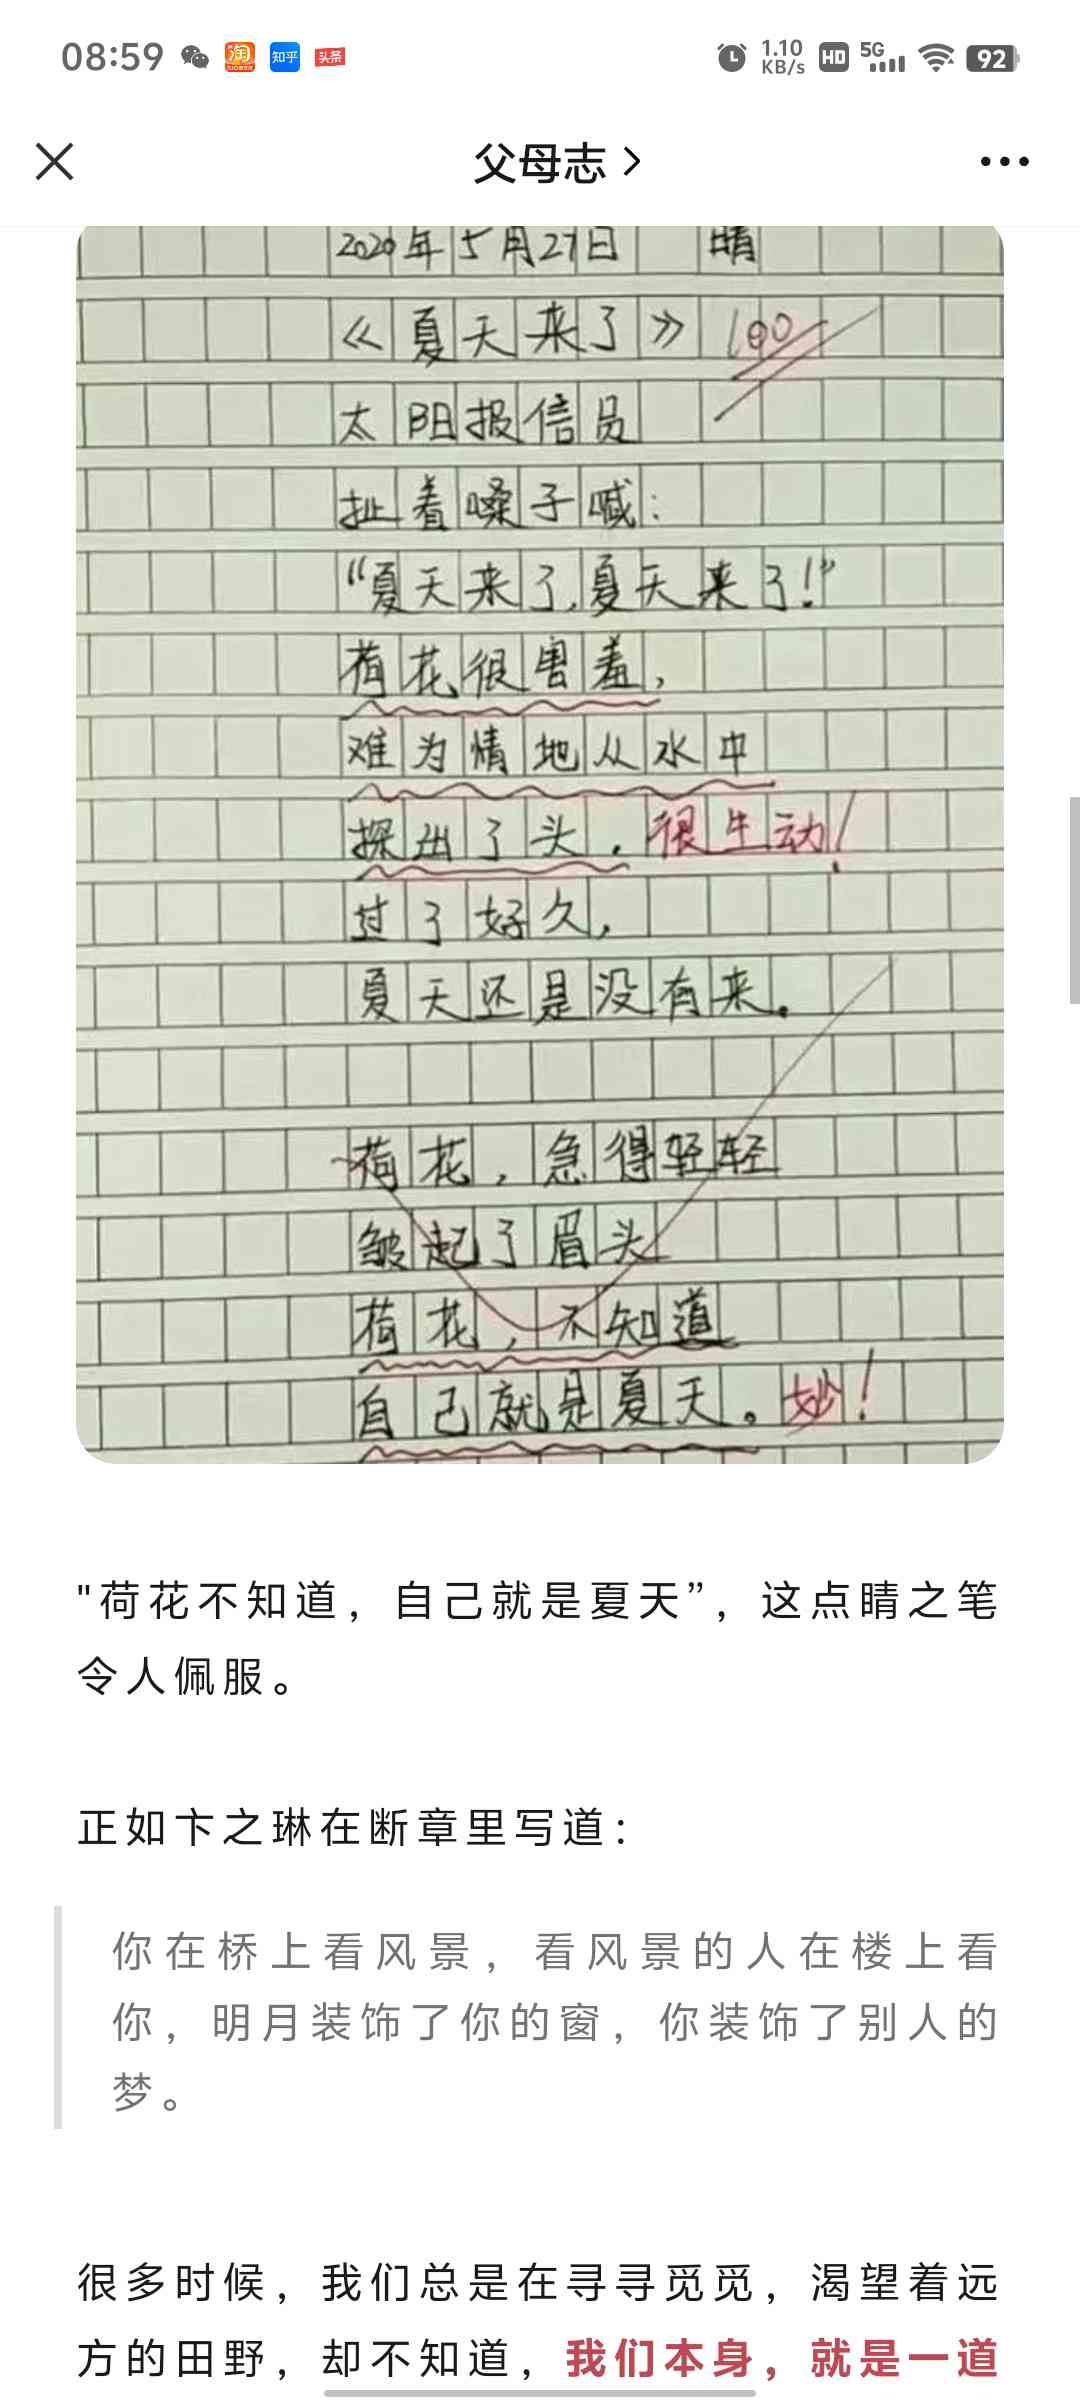 08:59
淘
知乎
头条
1.10
KB/s
HD
5G
92
父母志
2020年5月27日 晴
《夏天来了》 100
太阳报信员
扯着嗓子喊:
“夏天来了,夏天来了!”
荷花很害羞,
难为情地从水中
探出了头. 很生动!
过了好久,
夏天还是没有来。
荷花,急得轻轻
皱起了眉头
荷花,不知道
自己就是夏天。妙!
"荷花不知道，自己就是夏天”，这点睛之笔
令人佩服。
正如卞之琳在断章里写道：
你在桥上看风景，看风景的人在楼上看
你，明月装饰了你的窗，你装饰了别人的
梦。
很多时候，我们总是在寻寻觅觅，渴望着远
方的田野，却不知道，我们本身，就是一道